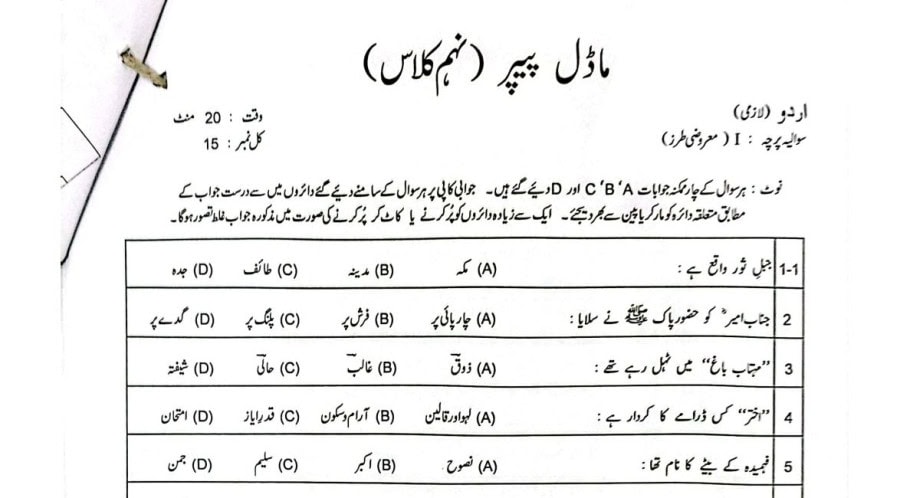 ماڈل پیپر (نہم کلاس)
اردو (لازمی)
وقت : 20 منٹ
سوالیہ پرچہ : I (معروضی طرز)
کل نمبر : 15
نوٹ : ہر سوال کے چار ممکنہ جوابات A، B، C اور D دیئے گئے ہیں۔ جوابی کاپی پر ہر سوال کے سامنے دیئے گئے دائروں میں سے درست جواب کے
مطابق متعلقہ دائرہ کو مارکر یا پین سے بھر دیجئے۔ ایک سے زیادہ دائروں کو پُر کرنے یا کاٹ کر پُر کرنے کی صورت میں مذکورہ جواب غلط تصور ہوگا۔
1-1 جبلِ ثور واقع ہے : (A) مکہ (B) مدینہ (C) طائف (D) جدہ
2 جناب امیرؓ کو حضور پاک ﷺ نے سلایا : (A) چارپائی پر (B) فرش پر (C) پلنگ پر (D) گدے پر
3 ”مہتاب باغ“ میں ٹہل رہے تھے : (A) ذوقؔ (B) غالبؔ (C) حالیؔ (D) شیفتہ
4 ”اختر“ کس ڈرامے کا کردار ہے : (A) لہو اور قالین (B) آرام و سکون (C) قدرِ ایاز (D) امتحان
5 فہمیدہ کے بیٹے کا نام تھا : (A) نصوح (B) اکبر (C) سلیم (D) جمن